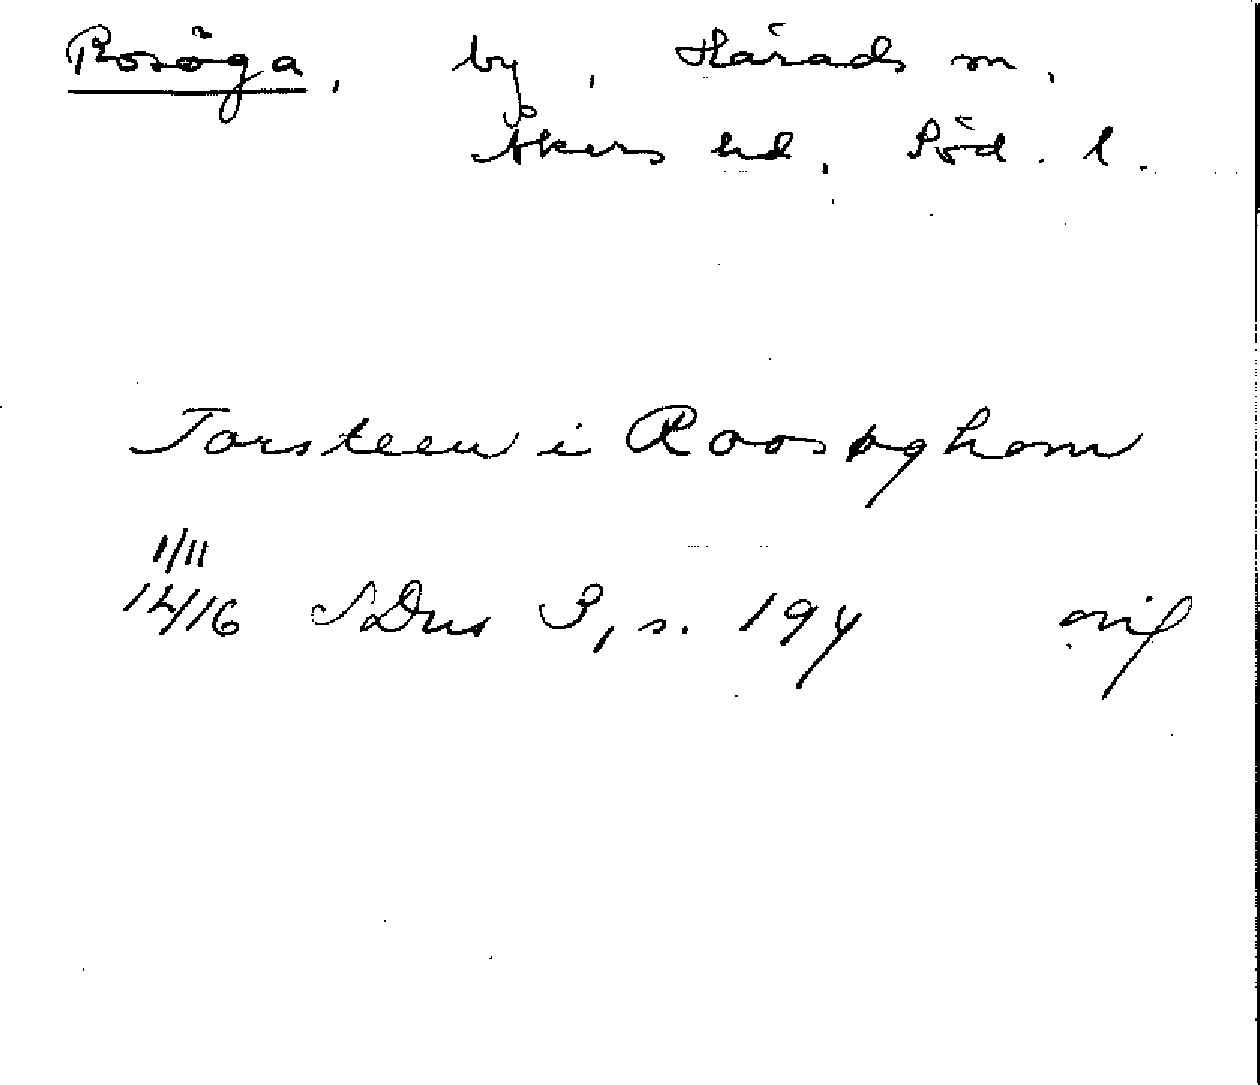 Rosöga, by, Härads sn,
Åkers hd, Söd. l.
Torsteen i Roosøghom
1/11
1416 SDns 3, s. 194 orig